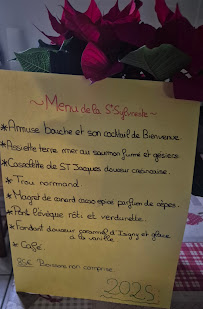 ~Menu de la St Sylvestre~
*Amuse bouche et son cocktail de Bienvenue.
*Assiette terre mer au saumon fumé et gésiers
*Cassolette de ST Jacques douceur
*Trou normand
*Magret de canard sauce épice parfum de cèpes.
*Pont l'évêque rôti et verdurette.
*Fondant douceur caramel d'Isigny et glace
à la vanille
*Café
Boisson non comprise
2025